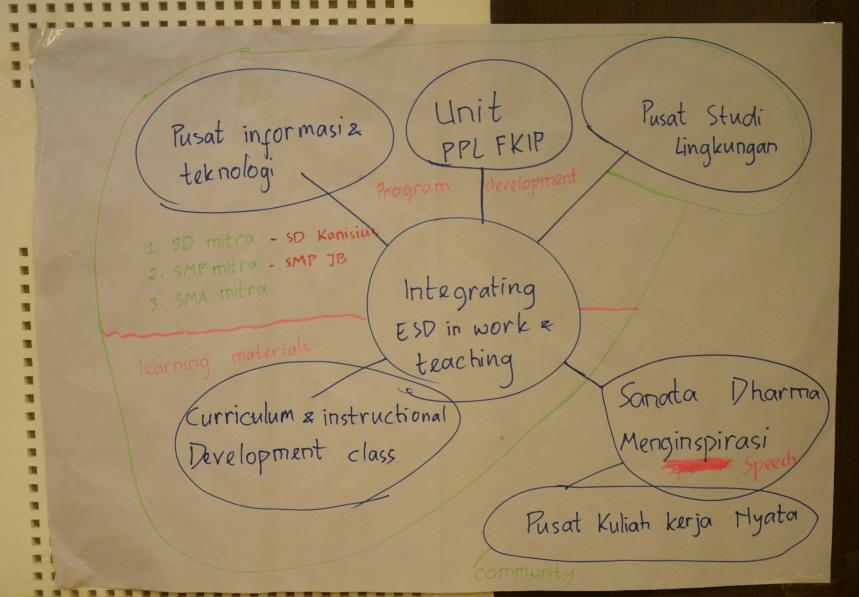 Pusat informasi &
teknologi
Unit
PPL FKIP
Pusat Studi
Lingkungan
Program development
1. SD mitra - SD Kanisius
2. SMP mitra - SMP JB
3. SMA mitra
Integrating
ESD in work &
teaching
learning materials
Curriculum & instructional
Development class
Sanata Dharma
Menginspirasi
Speech
Pusat Kuliah kerja Nyata
community